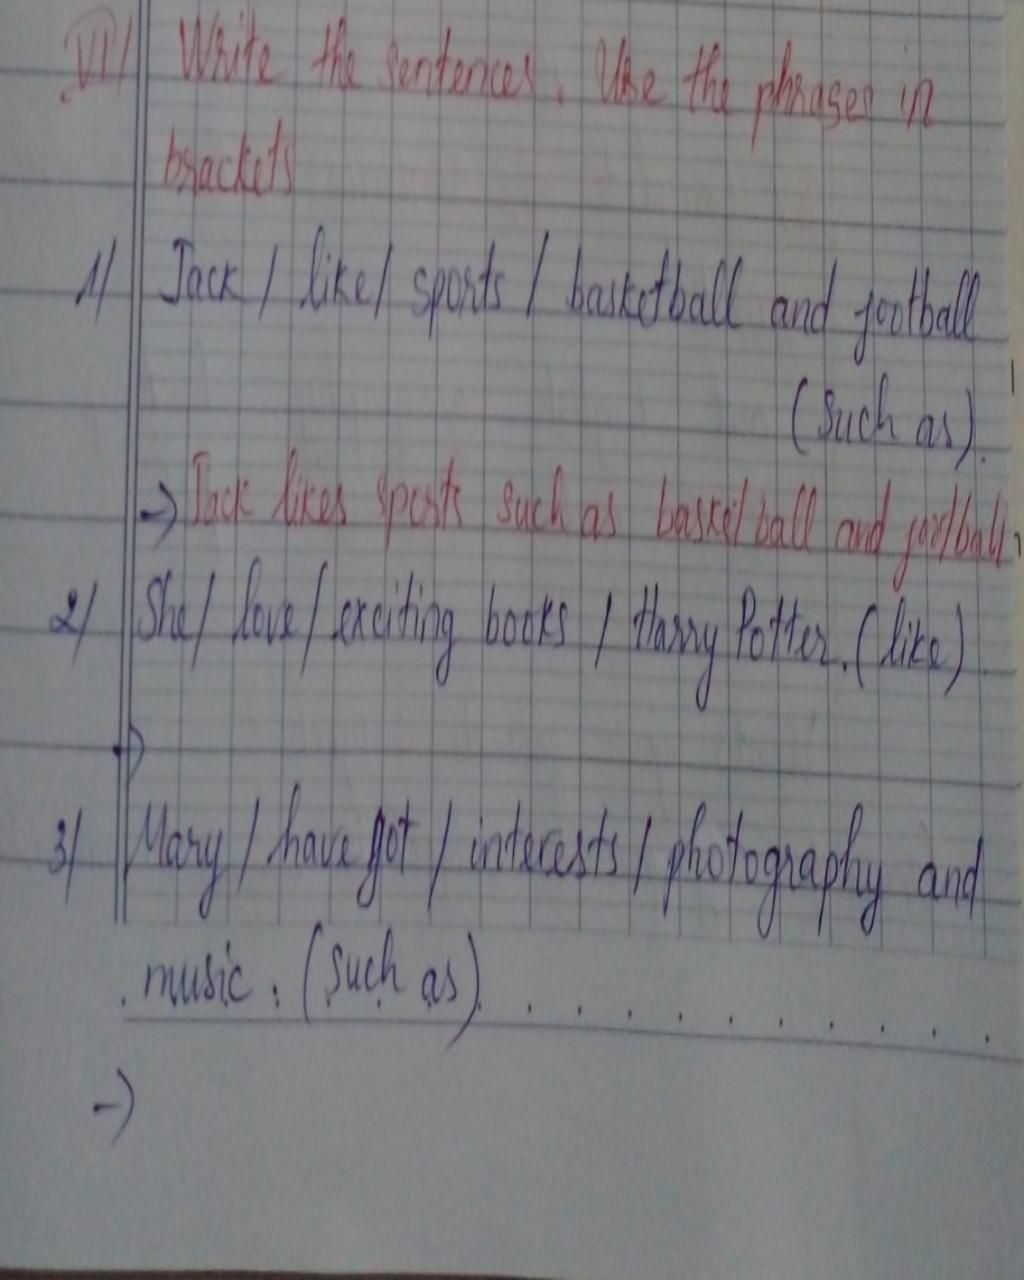 VI/ Write the sentences. Use the phrases in
brackets
1/ Jack / like / sports / basketball and football
(such as).
-> Jack likes sports such as basketball and football.
2/ She / love / exciting books / Harry Potter. (like)
->
3/ Mary / have got / interests / photography and
music. (such as)..........
->